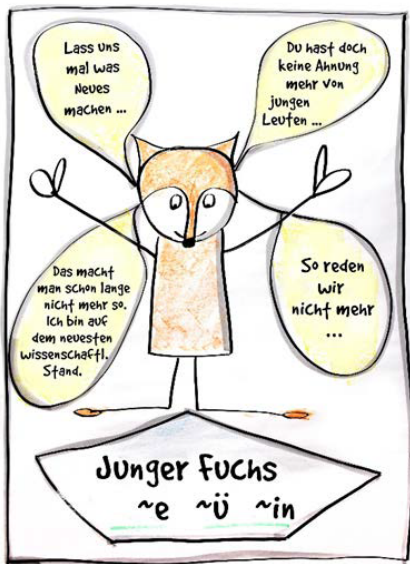 Lass uns
mal was
Neues
machen ...
Du hast doch
keine Ahnung
mehr von
jungen
Leuten ...
Das macht
man schon lange
nicht mehr so.
Ich bin auf
dem neuesten
wissenschaftl.
Stand.
So reden
wir
nicht mehr
...
Junger Fuchs
~e ~Ü ~in